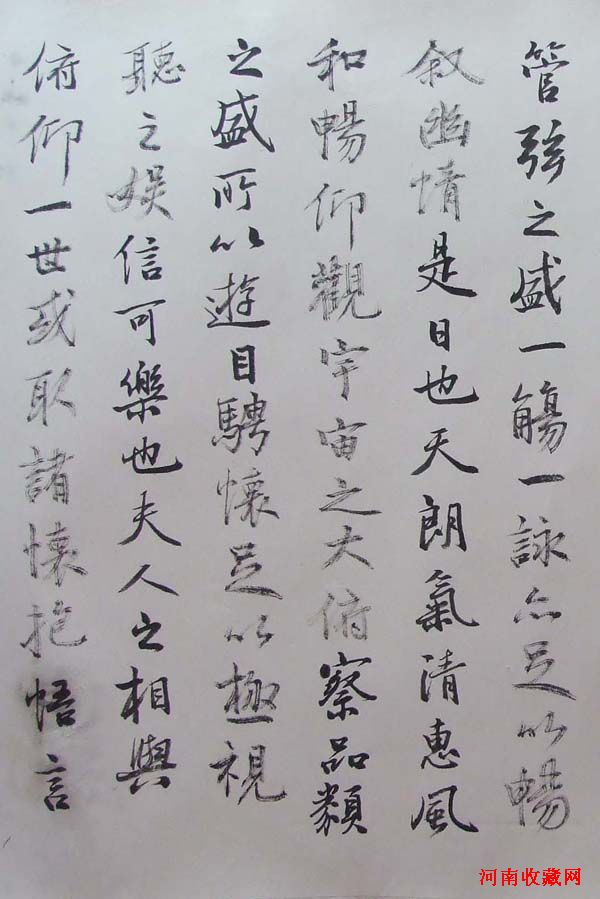 管弦之盛一觴一詠亦足以暢
叙幽情是日也天朗氣清惠風
和暢仰觀宇宙之大俯察品類
之盛所以遊目騁懷足以極視
聽之娱信可樂也夫人之相與
俯仰一世或取諸懷抱悟言
河南收藏网